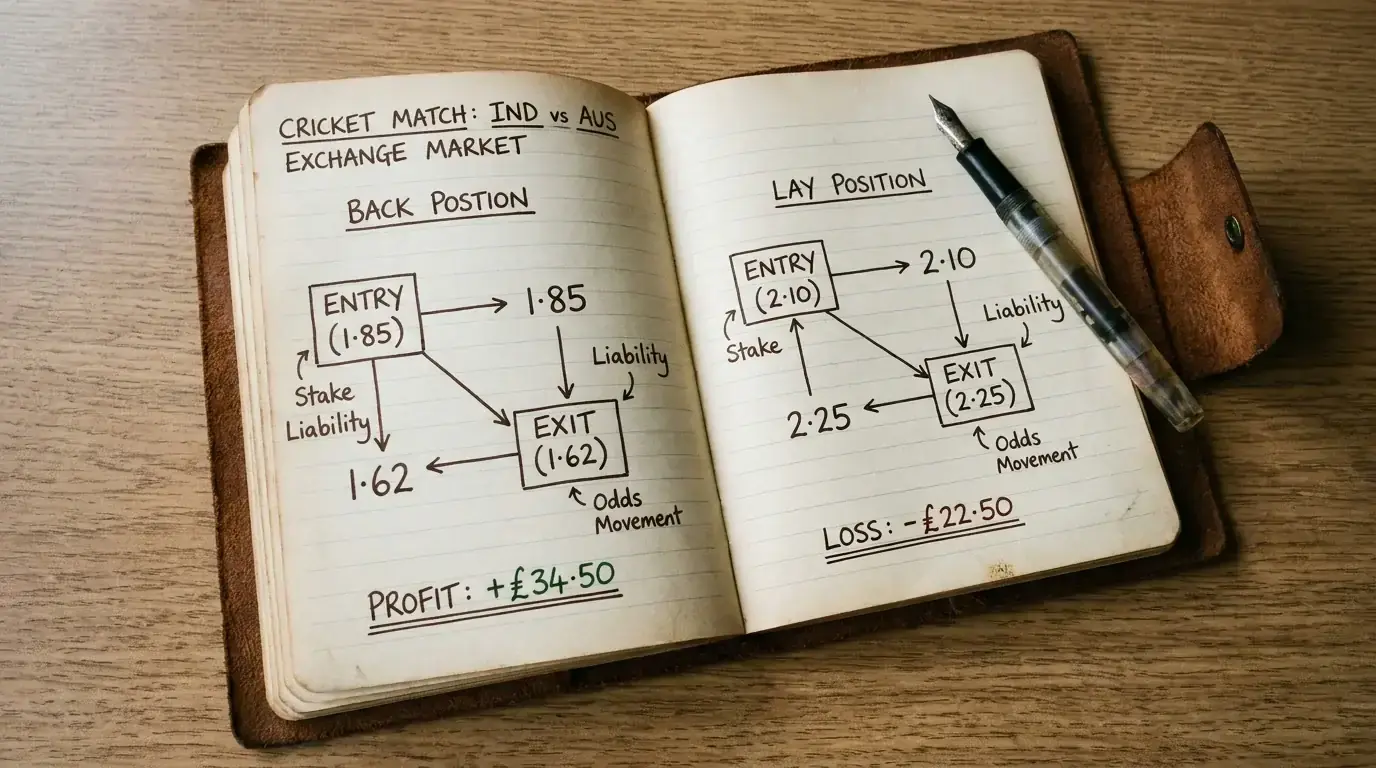 CRICKET MATCH: IND vs AUS
EXCHANGE MARKET
BACK POSTION
ENTRY
(1·85)
1·85
Stake
Liability
Liability
EXIT
(1·62)
1·62
Odds
Movement
PROFIT: +£34·50
LAY POSITION
ENTRY
(2·10)
2·10
Stake
Liability
EXIT
(2·25)
2·25
Odds
Movement
LOSS: -£22·50